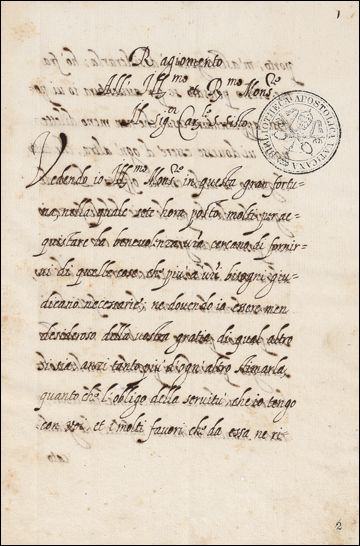 1
Ragionamento
All' Ill.mo et R.mo Mons.re
Il sig.r Car.le S. Sisto.
BIBLIOTHECA APOSTOLICA VATICANA
Vedendo io Ill.mo Mons.re in questa gran fortu=
na, nella quale sete hora posto, molti per ac=
quistare la benevolenza v.ra cercono di fornir=
vi di quelle cose, che più a i v.ri bisogni giu=
dicano necessarie; ne dovendo io essere men
desideroso della vostra gratia di qual altro
si sia anzi tanto più d'ogni altro stimarla,
quanto che l'obligo della servitù, che io tengo
con voi, et i molti favori che da essa ne ri
2